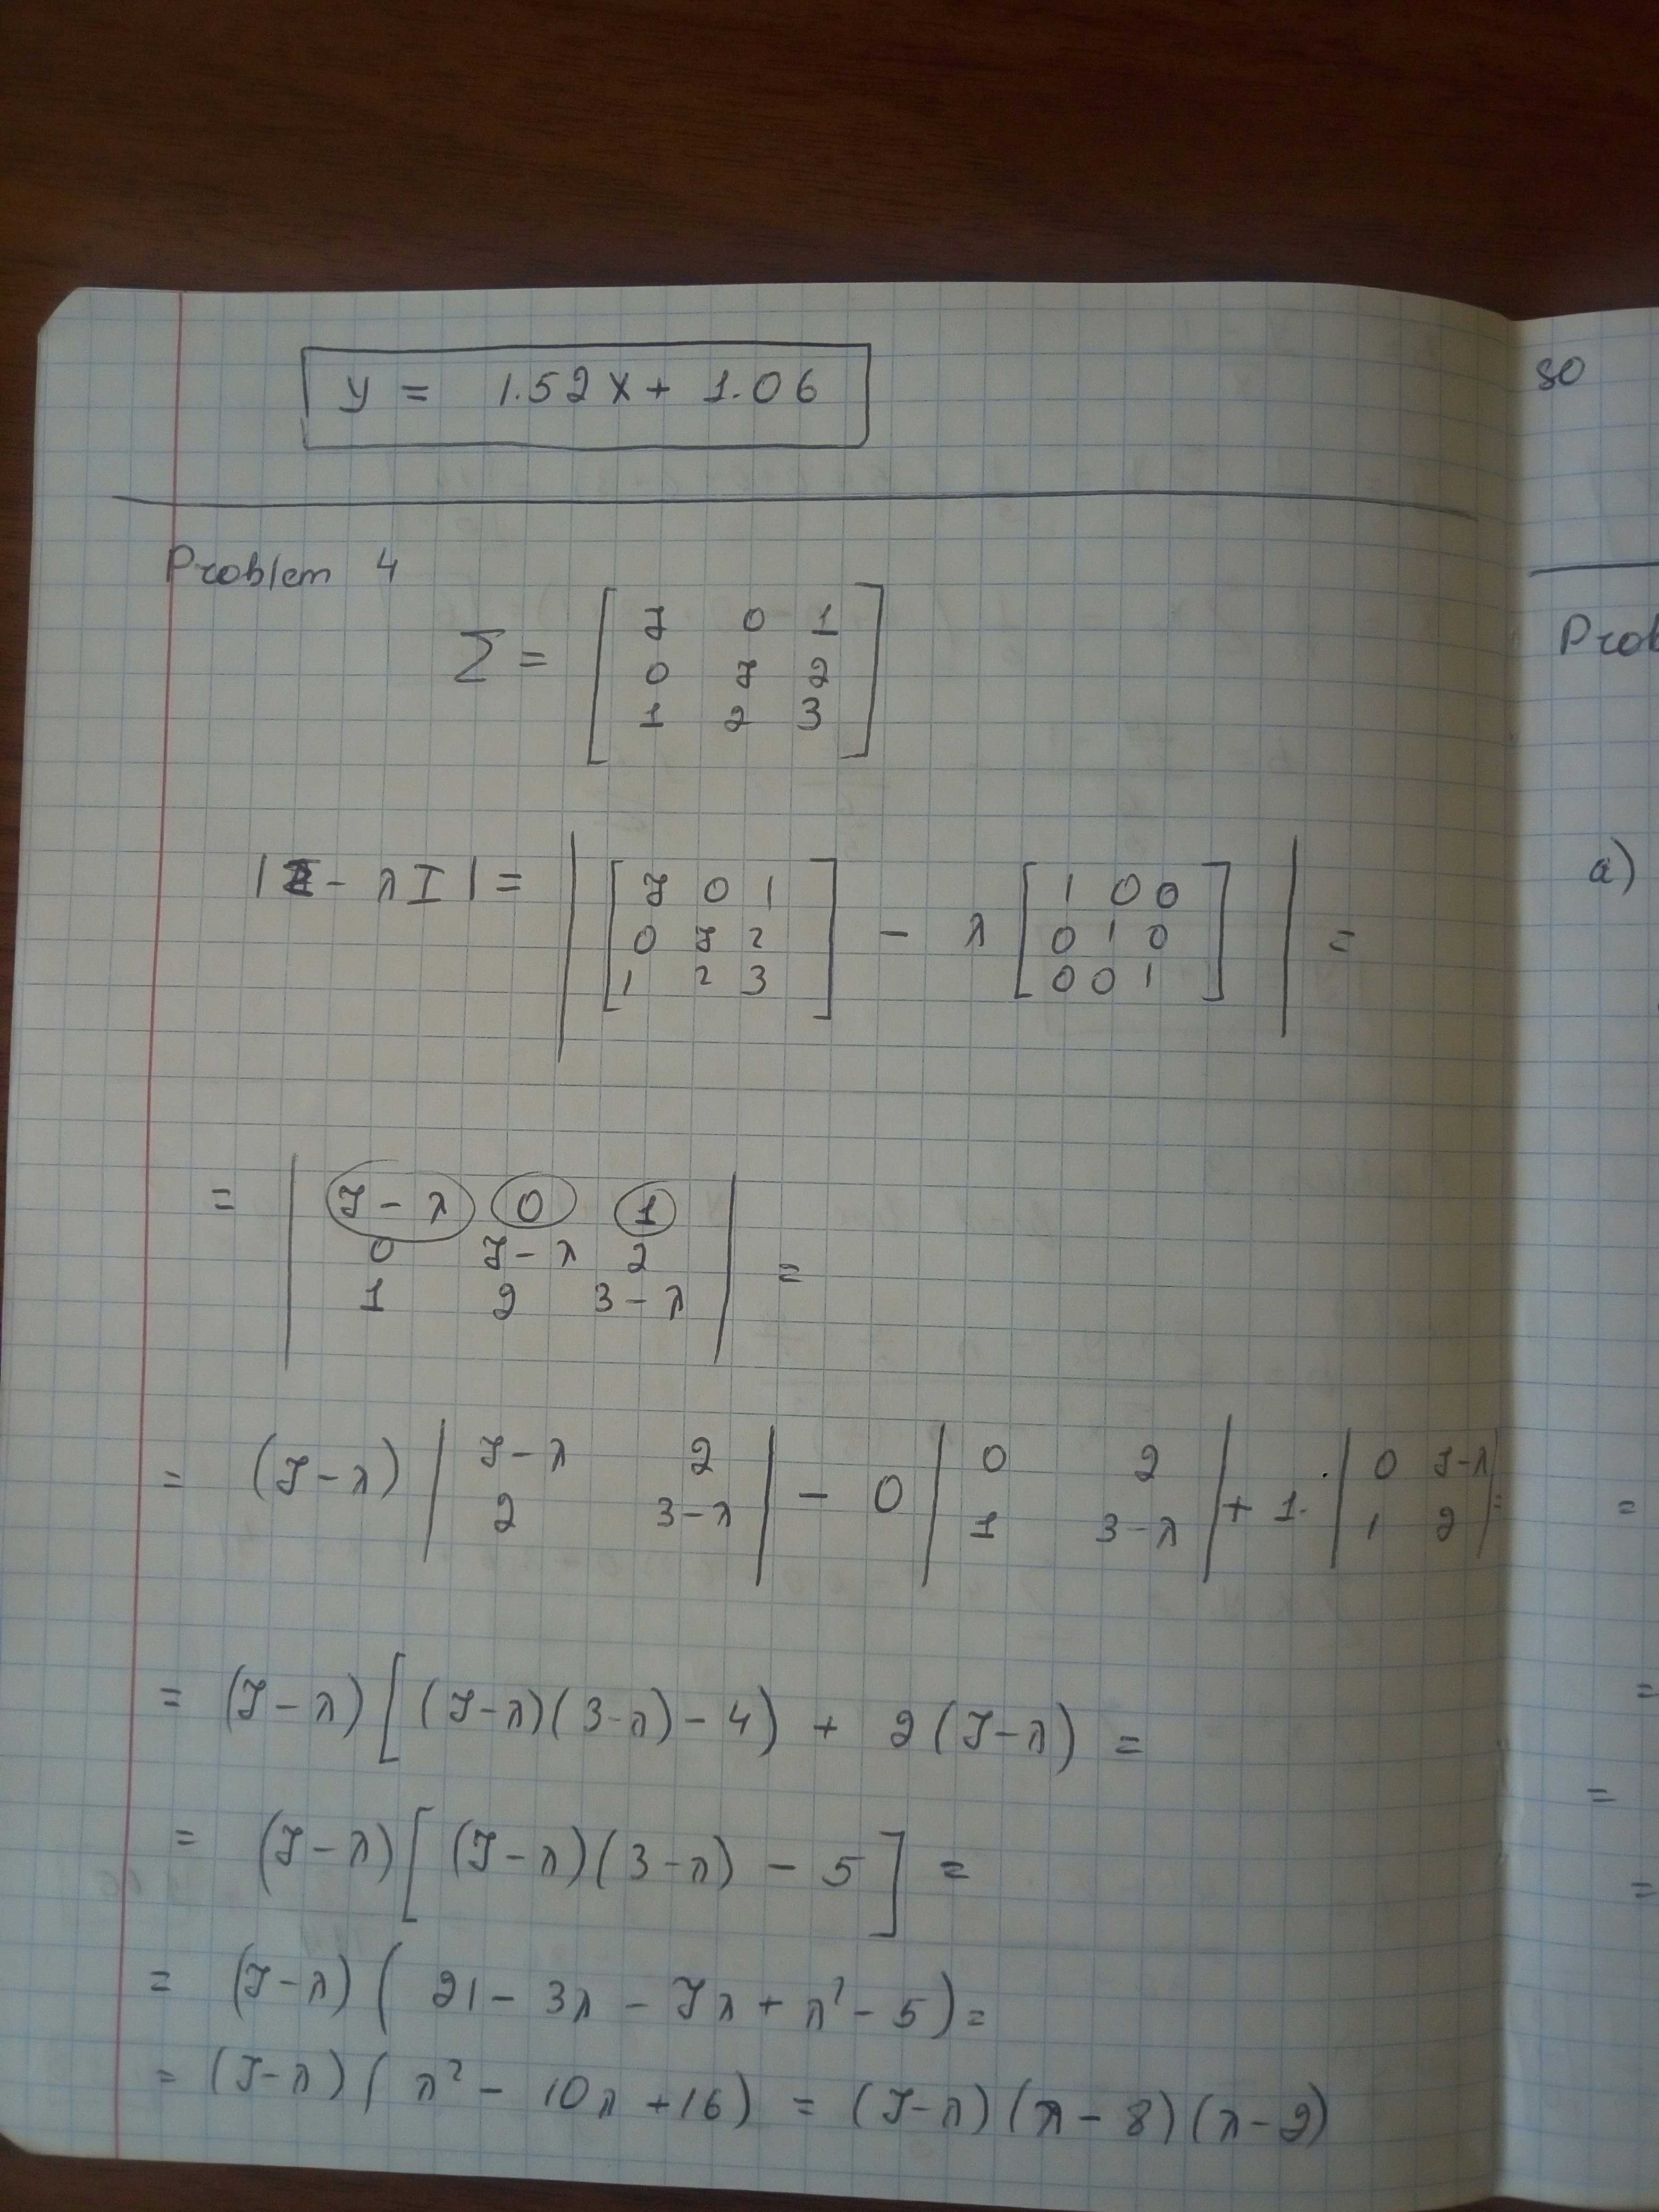 y = 1.52x + 1.06
Problem 4
Σ = [ 7 0 1
0 7 2
1 2 3 ]
|Σ - λI| = | [ 7 0 1
0 7 2
1 2 3 ] - λ [ 1 0 0
0 1 0
0 0 1 ] | =
= | 7-λ 0 1
0 7-λ 2
1 2 3-λ | =
= (7-λ) | 7-λ 2
2 3-λ | - 0 | 0 2
1 3-λ | + 1· | 0 7-λ
1 2 | =
= (7-λ) [ (7-λ)(3-λ) - 4) + 2(7-λ) =
= (7-λ) [ (7-λ)(3-λ) - 5 ] =
= (7-λ) ( 21 - 3λ - 7λ + λ² - 5) =
= (7-λ) ( λ² - 10λ + 16) = (7-λ)(λ - 8)(λ - 2)
so
Prob
a)
=
=
=
=